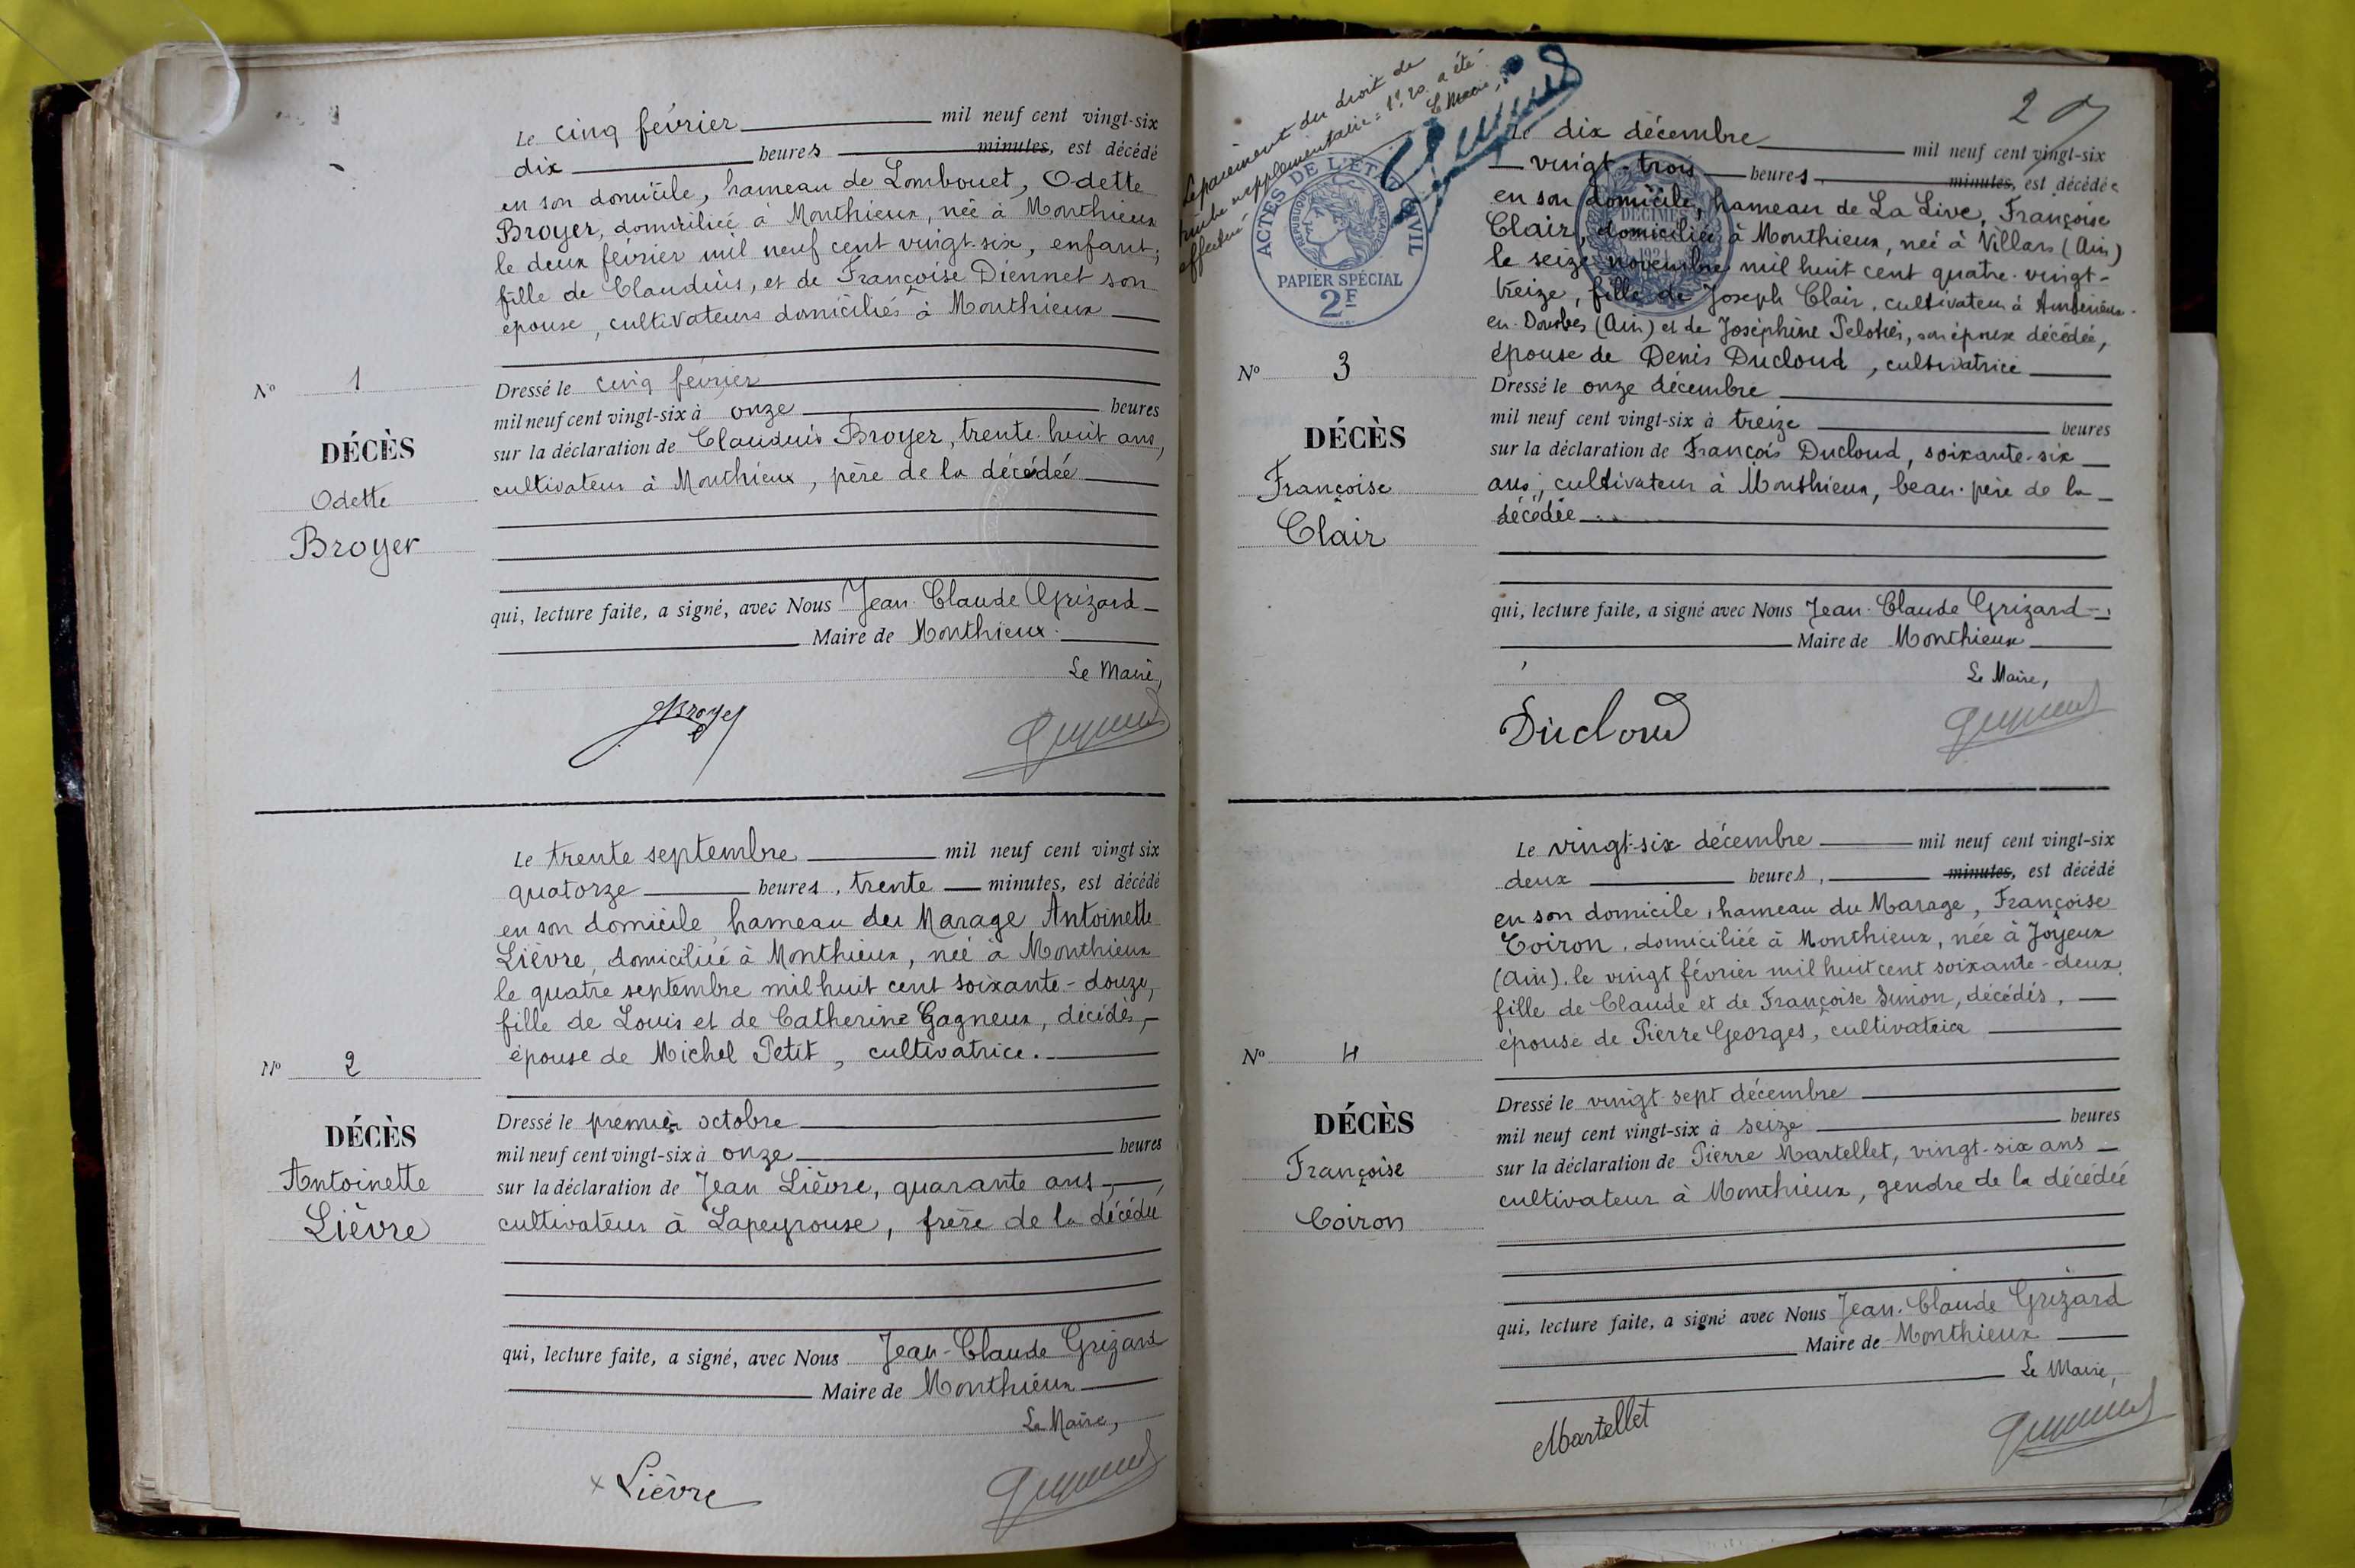 Le cinq février mil neuf cent vingt-six
dix heures minutes, est décédé
en son domicile, hameau de Lombouet, Odette
Broyer, domiciliée à Monthieux, née à Monthieux
le deux février mil neuf cent vingt-six, enfant;
fille de Claudius, et de Françoise Diennet son
épouse, cultivateurs domiciliés à Monthieux
Nº 1
DÉCÈS
Odette
Broyer
Dressé le cinq février
mil neuf cent vingt-six à onze heures
sur la déclaration de Claudius Broyer, trente-huit ans,
cultivateur à Monthieux, père de la décédée
qui, lecture faite, a signé, avec Nous Jean-Claude Grizard
Maire de Monthieux.
Le Maire,
Broyer
Le trente septembre mil neuf cent vingt six
quatorze heures, trente minutes, est décédé
en son domicile hameau du Marage Antoinette
Lièvre, domiciliée à Monthieux, née à Monthieux
le quatre septembre mil huit cent soixante-douze,
fille de Louis et de Catherine Gagneux, décédés,
épouse de Michel Petit, cultivatrice.
Nº 2
DÉCÈS
Antoinette
Lièvre
Dressé le premier octobre
mil neuf cent vingt-six à onze heures
sur la déclaration de Jean Lièvre, quarante ans,
cultivateur à Lapeyrouse, frère de la décédée
qui, lecture faite, a signé, avec Nous Jean-Claude Grizard
Maire de Monthieux
Le Maire,
Lièvre
Le paiement du droit de
timbre supplémentaire = 1f,20 a été
effectué Le Maire,
ACTES DE L'ÉTAT CIVIL
RÉPUBLIQUE FRANÇAISE
PAPIER SPÉCIAL
2F
DÉCIMES
20
Le dix décembre mil neuf cent vingt-six
vingt-trois heures, minutes, est décédée
en son domicile, hameau de La Live, Françoise
Clair, domiciliée à Monthieux, née à Villars (Ain)
le seize novembre mil huit cent quatre-vingt-
treize, fille de Joseph Clair, cultivateur à Ambérieux-
en-Dombes (Ain) et de Joséphine son épouse décédée,
épouse de Denis Ducloud, cultivatrice
Nº 3
DÉCÈS
Françoise
Clair
Dressé le onze décembre
mil neuf cent vingt-six à treize heures
sur la déclaration de François Ducloud, soixante-six
ans, cultivateur à Monthieux, beau-père de la
décédée
qui, lecture faite, a signé avec Nous Jean-Claude Grizard
Maire de Monthieux
Le Maire,
Ducloud
Le vingt-six décembre mil neuf cent vingt-six
deux heures, minutes, est décédé
en son domicile, hameau du Marage, Françoise
Coiron, domiciliée à Monthieux, née à Joyeux
(Ain), le vingt février mil huit cent soixante-deux,
fille de Claude et de Françoise Simon, décédés,
épouse de Pierre Georges, cultivatrice
Nº 4
DÉCÈS
Françoise
Coiron
Dressé le vingt-sept décembre
mil neuf cent vingt-six à seize heures
sur la déclaration de Pierre Martellet, vingt-six ans
cultivateur à Monthieux, gendre de la décédée
qui, lecture faite, a signé avec Nous Jean-Claude Grizard
Maire de Monthieux
Le Maire,
Martellet